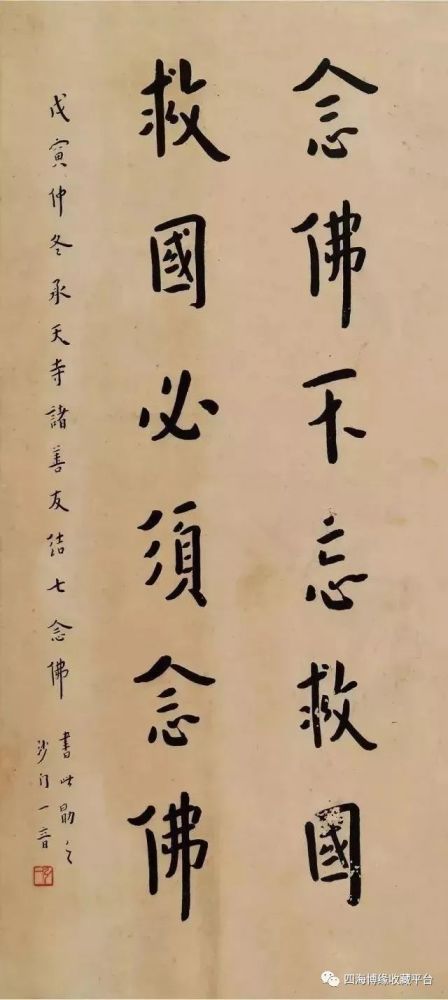 念佛不忘救國
救國必須念佛
戊寅仲冬承天寺諸善友結七念佛
書此勖之
沙门一音
四海博缘收藏平台